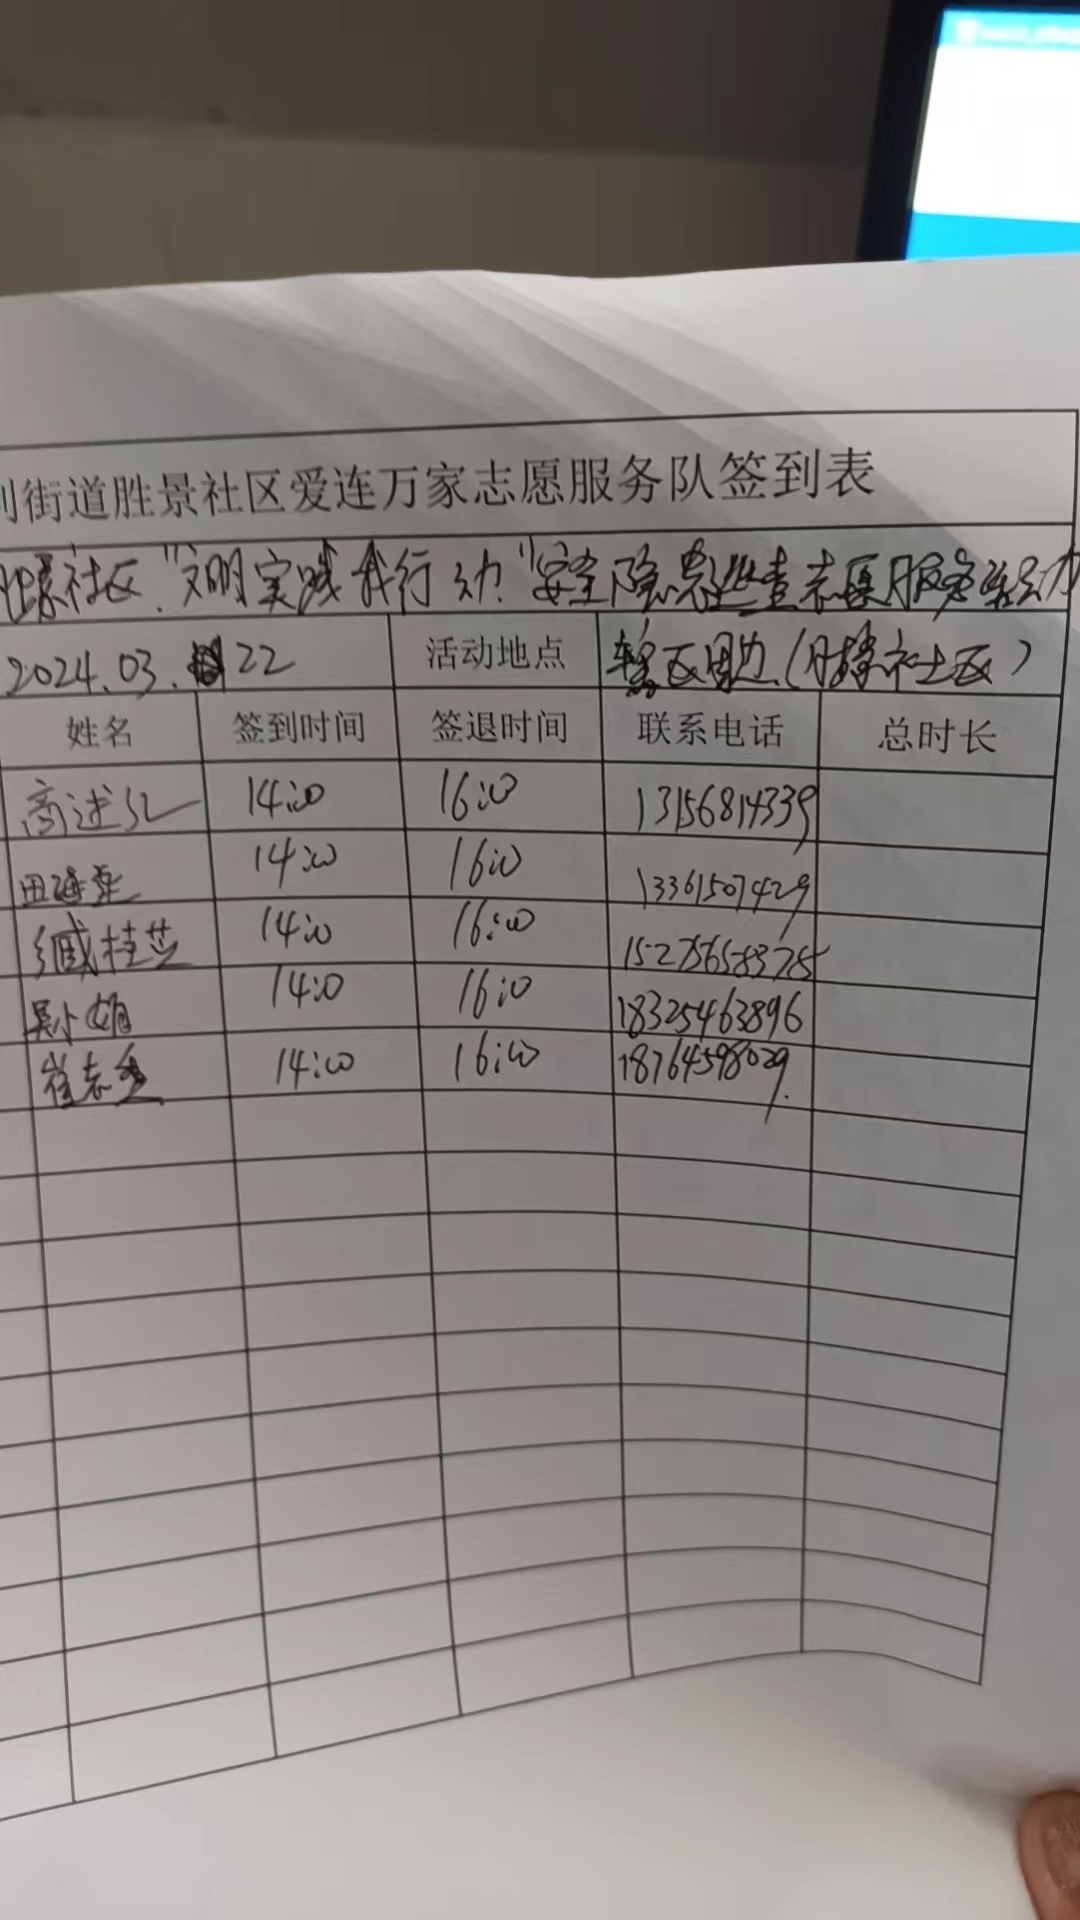 街道胜景社区爱连万家志愿服务队签到表
胜景社区“文明实践我行动”安全隐患巡查志愿服务活动
2024.03. 22 活动地点 辖区周边(胜景社区)
姓名 签到时间 签退时间 联系电话 总时长
高述 14:00 16:00 13156814339
田海 14:00 16:00 13361507429
臧桂芬 14:00 16:00
吴小娟 14:00 16:00 18325463896
崔志 14:00 16:00 18764598029